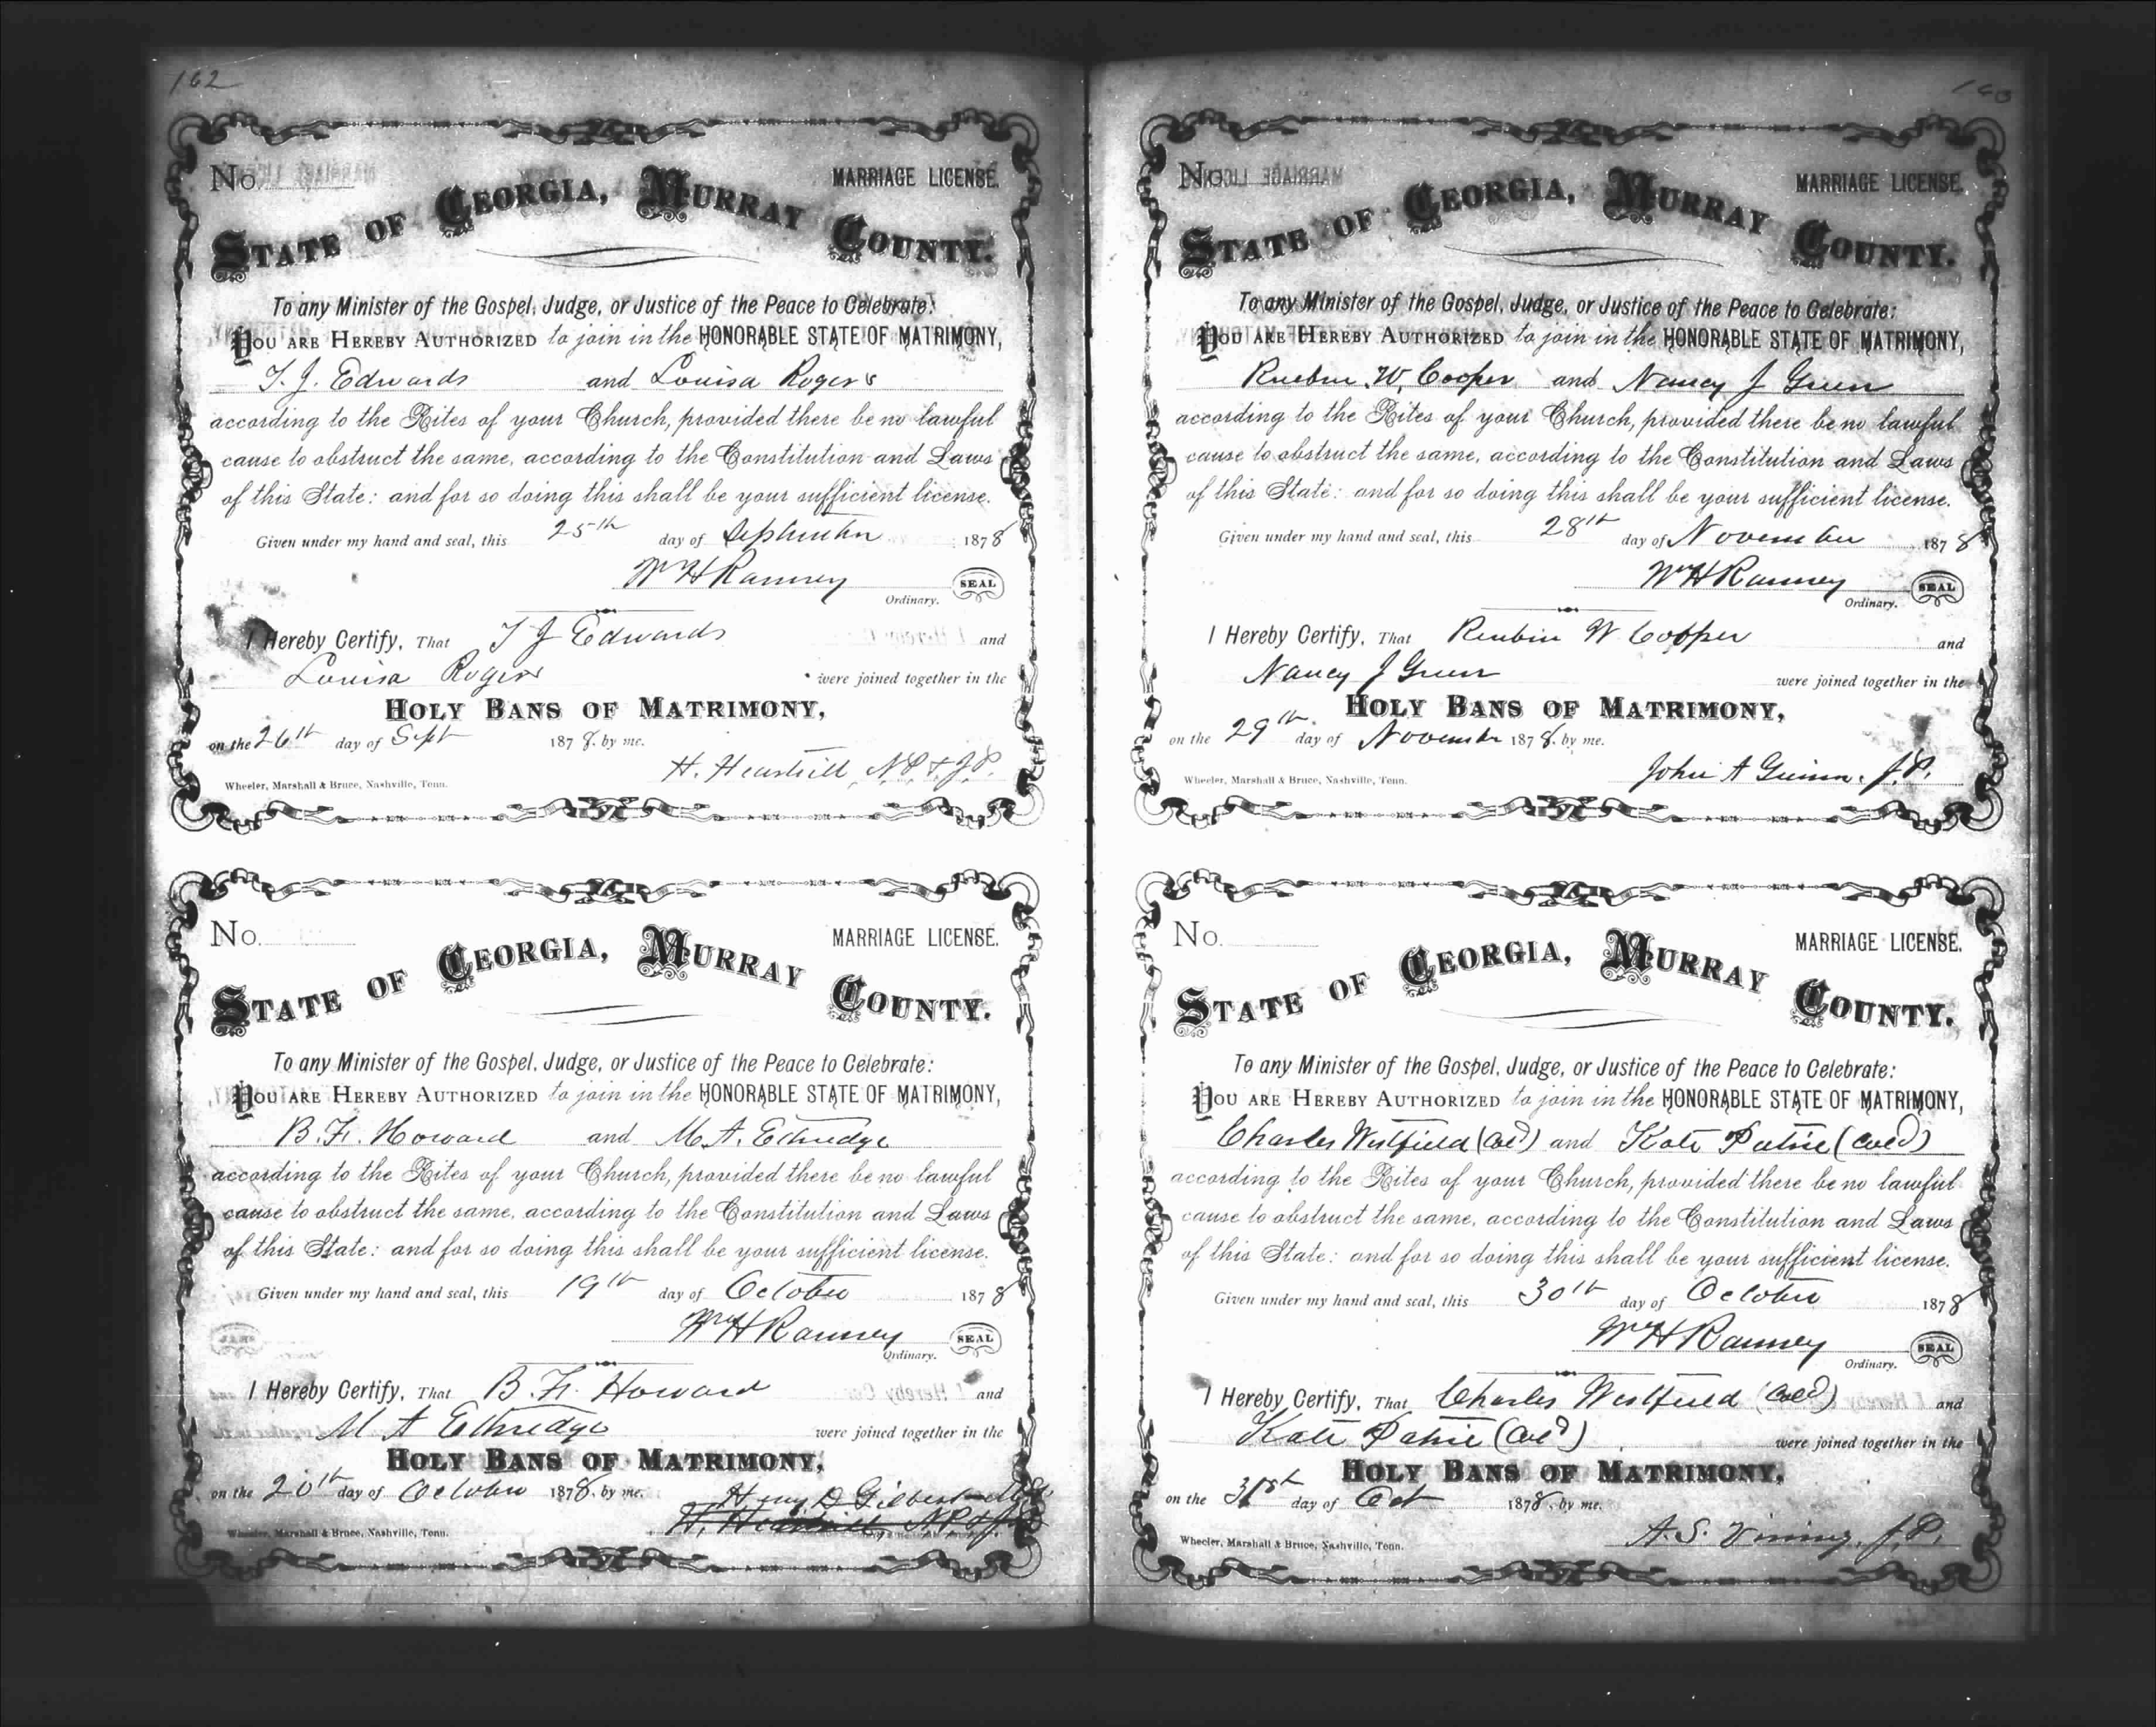 162
No.
MARRIAGE LICENSE.
STATE OF GEORGIA, MURRAY COUNTY.
To any Minister of the Gospel, Judge, or Justice of the Peace to Celebrate:
YOU ARE HEREBY AUTHORIZED to join in the HONORABLE STATE OF MATRIMONY,
T. J. Edwards and Louisa Rogers
according to the Rites of your Church, provided there be no lawful
cause to obstruct the same, according to the Constitution and Laws
of this State: and for so doing this shall be your sufficient license.
Given under my hand and seal, this 25th day of September 1878
Wm H Ramsey SEAL
Ordinary.
I Hereby Certify, That T J Edwards and
Louisa Rogers were joined together in the
HOLY BANS OF MATRIMONY,
on the 26th day of Sept 1878. by me.
H. Heartsill, N.P. & J.P.
Wheeler, Marshall & Bruce, Nashville, Tenn.
No.
MARRIAGE LICENSE.
STATE OF GEORGIA, MURRAY COUNTY.
To any Minister of the Gospel, Judge, or Justice of the Peace to Celebrate:
YOU ARE HEREBY AUTHORIZED to join in the HONORABLE STATE OF MATRIMONY,
B. F. Howard and M. A. Ethredge
according to the Rites of your Church, provided there be no lawful
cause to obstruct the same, according to the Constitution and Laws
of this State: and for so doing this shall be your sufficient license.
Given under my hand and seal, this 19th day of October 1878
Wm H Ramsey SEAL
Ordinary.
I Hereby Certify, That B. F. Howard and
M A Ethredge were joined together in the
HOLY BANS OF MATRIMONY,
on the 20th day of October 1878. by me.
D Gilbert
H. Heartsill, N.P. & J.P.
Wheeler, Marshall & Bruce, Nashville, Tenn.
No.
MARRIAGE LICENSE.
STATE OF GEORGIA, MURRAY COUNTY.
To any Minister of the Gospel, Judge, or Justice of the Peace to Celebrate:
YOU ARE HEREBY AUTHORIZED to join in the HONORABLE STATE OF MATRIMONY,
Rueben W. Cooper and Nancy J Green
according to the Rites of your Church, provided there be no lawful
cause to obstruct the same, according to the Constitution and Laws
of this State: and for so doing this shall be your sufficient license.
Given under my hand and seal, this 28th day of November 1878
Wm H Ramsey SEAL
Ordinary.
I Hereby Certify, That Reubin W Cooper and
Nancy J Green were joined together in the
HOLY BANS OF MATRIMONY,
on the 29th day of November 1878. by me.
John A J.P.
Wheeler, Marshall & Bruce, Nashville, Tenn.
No.
MARRIAGE LICENSE.
STATE OF GEORGIA, MURRAY COUNTY.
To any Minister of the Gospel, Judge, or Justice of the Peace to Celebrate:
YOU ARE HEREBY AUTHORIZED to join in the HONORABLE STATE OF MATRIMONY,
Charles Westfield (Cold) and Kate (Cold)
according to the Rites of your Church, provided there be no lawful
cause to obstruct the same, according to the Constitution and Laws
of this State: and for so doing this shall be your sufficient license.
Given under my hand and seal, this 30th day of October 1878
Wm H Ramsey SEAL
Ordinary.
I Hereby Certify, That Charles Westfield (Cold) and
Kate (Cold) were joined together in the
HOLY BANS OF MATRIMONY,
on the 31st day of Oct 1878. by me.
A. S. Vining, J.P.
Wheeler, Marshall & Bruce, Nashville, Tenn.